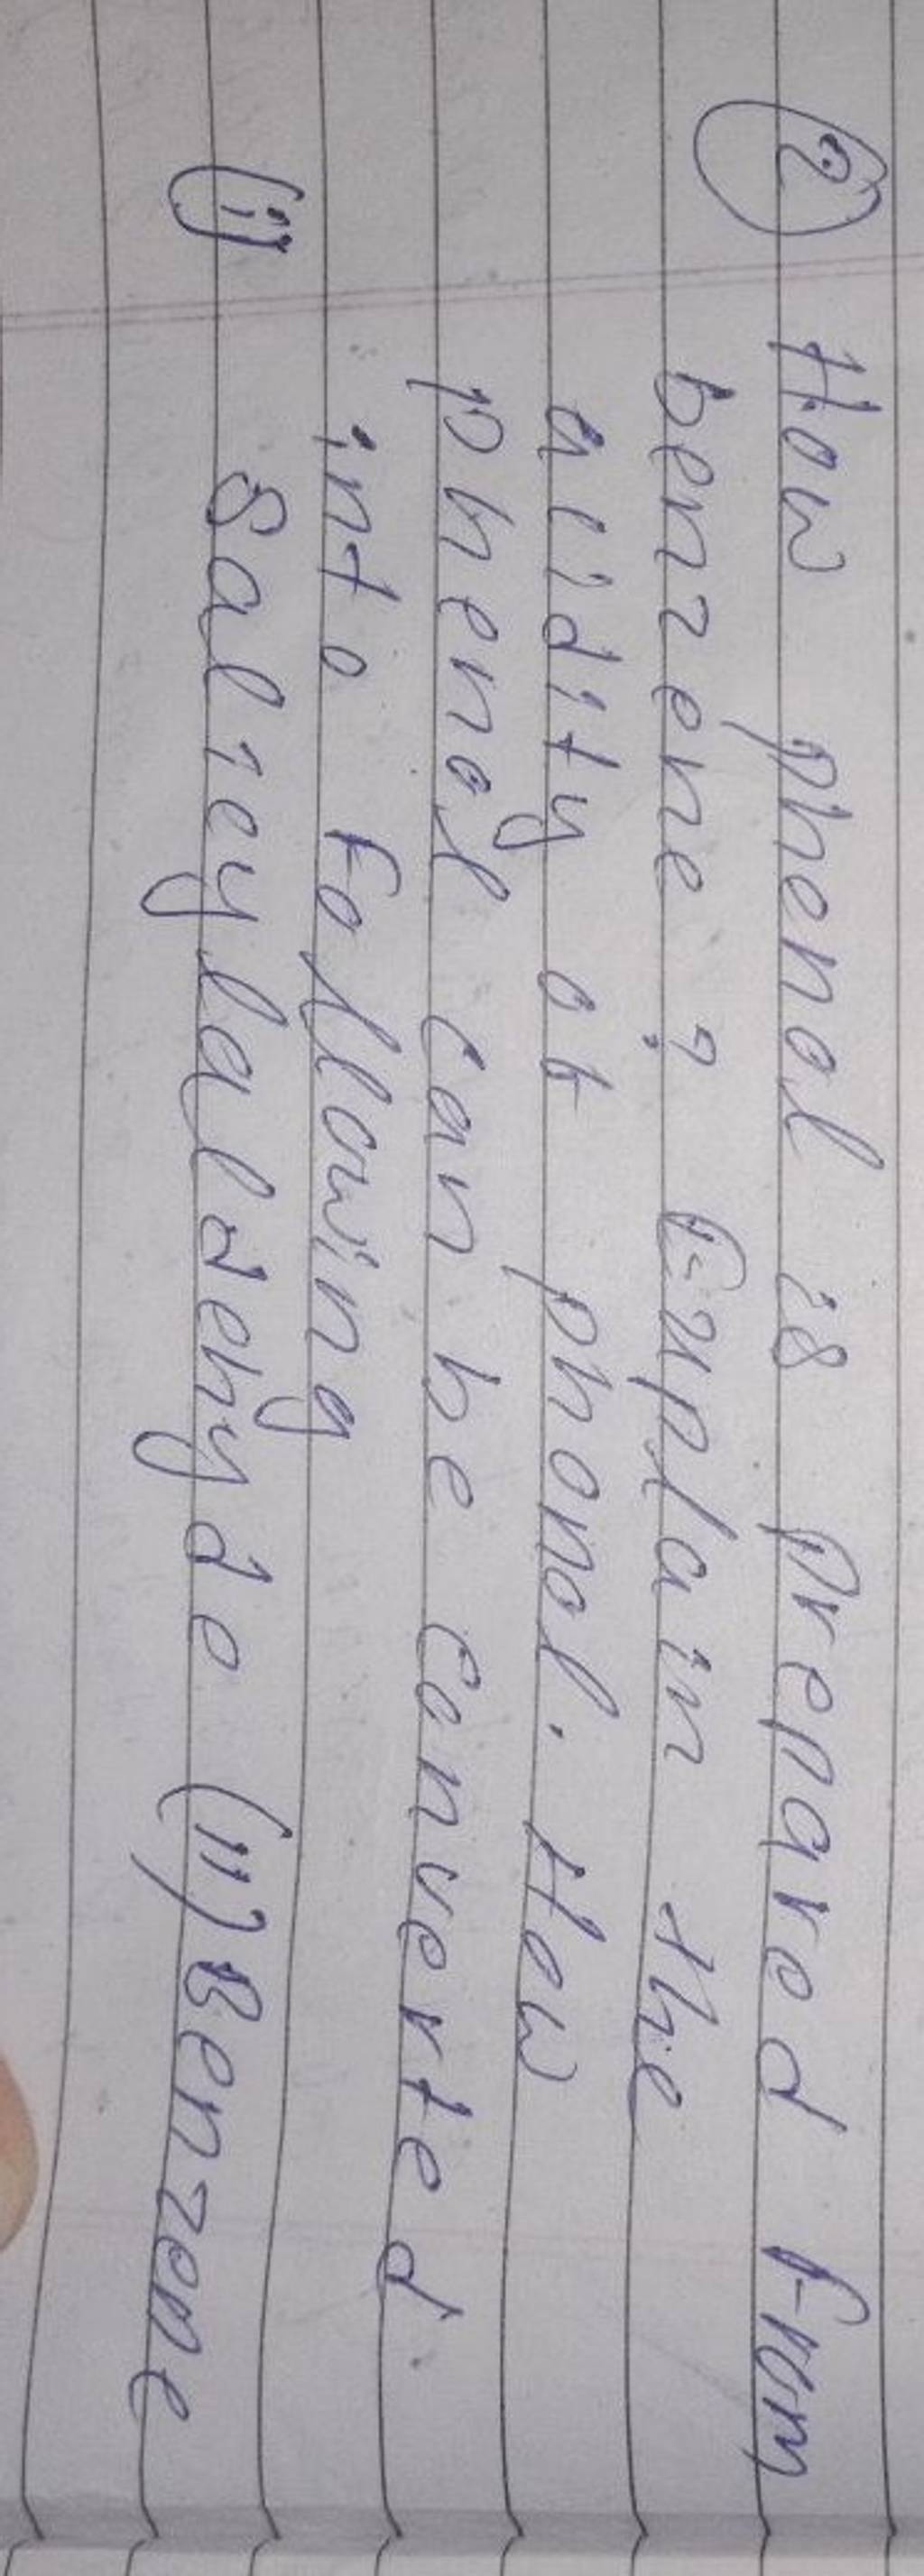 2 How phenol is prepared from
benzene ? Explain the
acidity of phonol. How
phenol can be converted
into following
(i) Salicylaldehyde (ii) Benzene